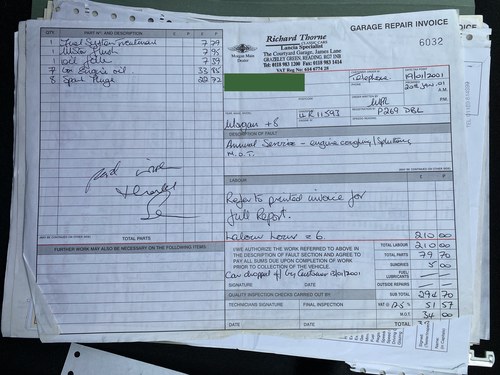 GARAGE REPAIR INVOICE
6032
Richard Thorne
CLASSIC CARS
Lancia Specialist
The Courtyard Garage, James Lane
GRAZELEY GREEN, READING. RG7 1NB
Tel: 0118 983 1200 Fax: 0118 983 1414
Morgan Main Dealer
QTY PART No. AND DESCRIPTION £ P £ P
1 Fuel System Treatment 7 79
1 7 95
1 oil filter 7 39
7 Ltr Engine oil 33 85
8 Spark Plugs 22 72
Telephone
9/01/2001
20th Jan. 01
A.M.
P.M.
Morgan +8
P269 DBL
DESCRIPTION OF FAULT
Annual Service - engine coughing/spluttering
M.O.T.
LABOUR £ P
Refer to printed invoice for
full Report.
Labour Hours = 6. 210 00
TOTAL PARTS
TOTAL LABOUR 210 00
TOTAL PARTS 79 70
SUNDRIES 5 00
FUEL/LUBRICANTS
OUTSIDE REPAIRS
SUB TOTAL 294 70
VAT @ 17.5% 51 57
M.O.T. 34 00
TOTAL
FURTHER WORK MAY ALSO BE NECESSARY ON THE FOLLOWING ITEMS
I/WE AUTHORIZE THE WORK REFERRED TO ABOVE IN
THE DESCRIPTION OF FAULT SECTION AND AGREE TO
PAY ALL SUMS DUE UPON COMPLETION OF WORK
PRIOR TO COLLECTION OF THE VEHICLE.
SIGNATURE DATE
QUALITY INSPECTION CHECKS CARRIED OUT BY:
TECHNICIANS SIGNATURE FINAL INSPECTION
DATE DATE